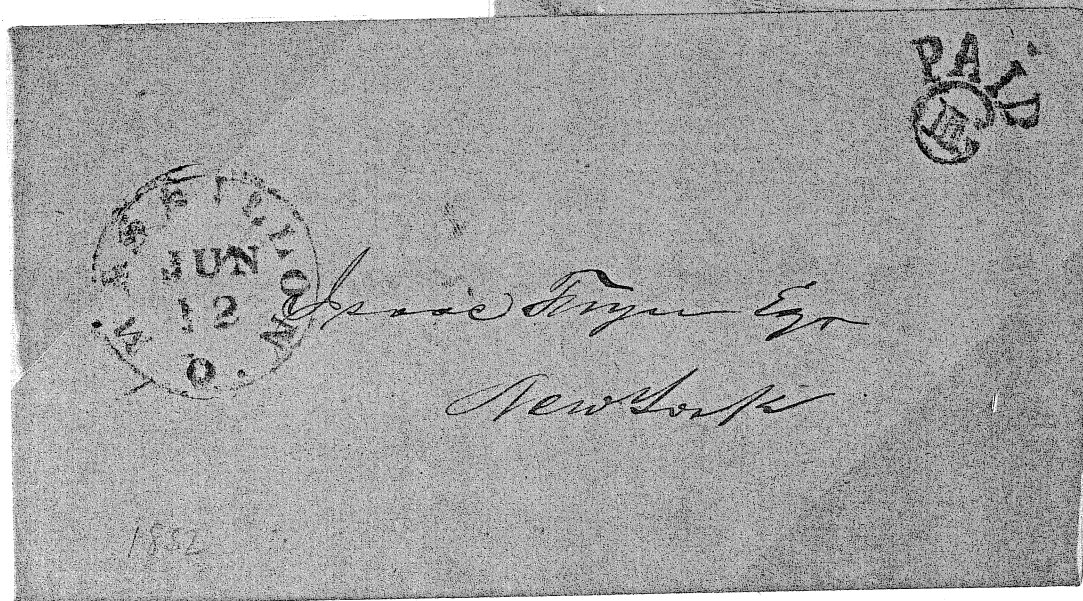 PAID
III
MASSILLON
JUN
12
O.
Isaac Esqr
New York
1852